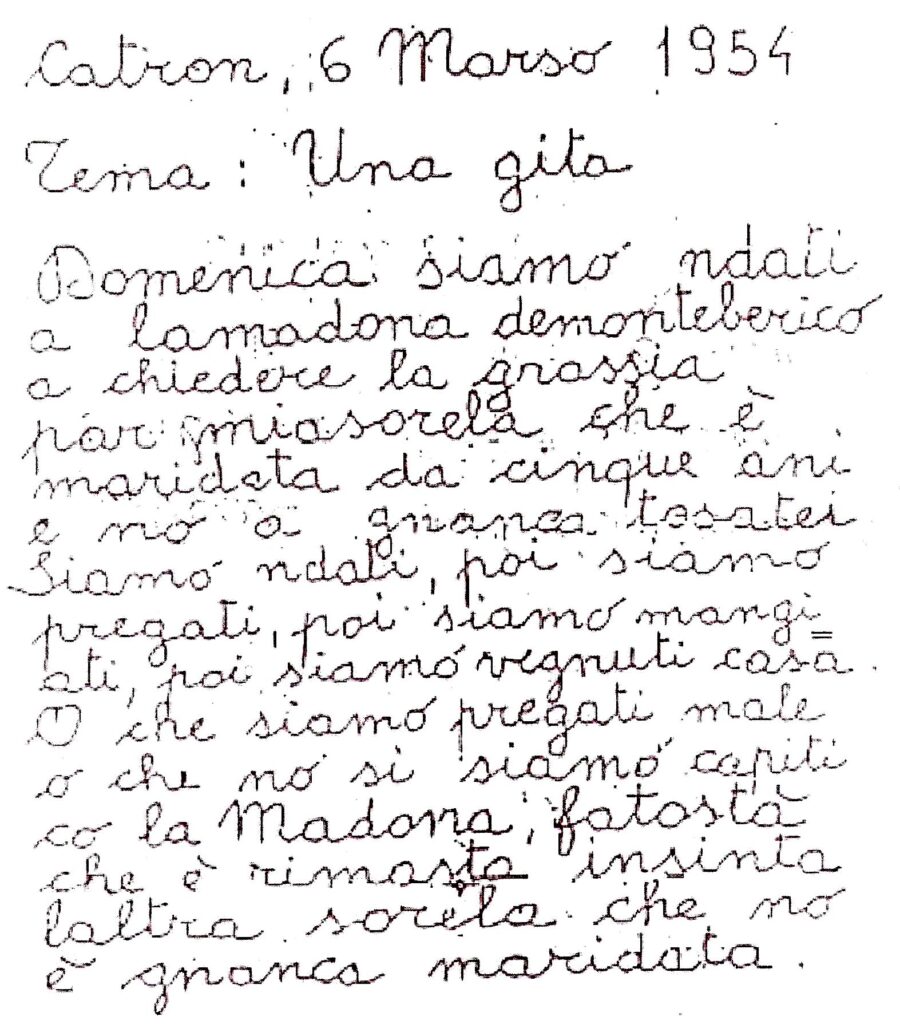 Catron, 6 Marso 1954
Tema: Una gita
Domenica siamo ndati
a lamadona demonteberico
a chiedere la grassia
par miasorela che è
maridata da cinque ani
e no a gnanca tosatei
Siamo ndati, poi siamo
pregati, poi siamo mangi
ati, poi siamo vegnuti casa.
O che siamo pregati male
o che no si siamo capiti
co la Madona, fatostà
che è rimasta insinta
laltra sorela che no
è gnanca maridata.